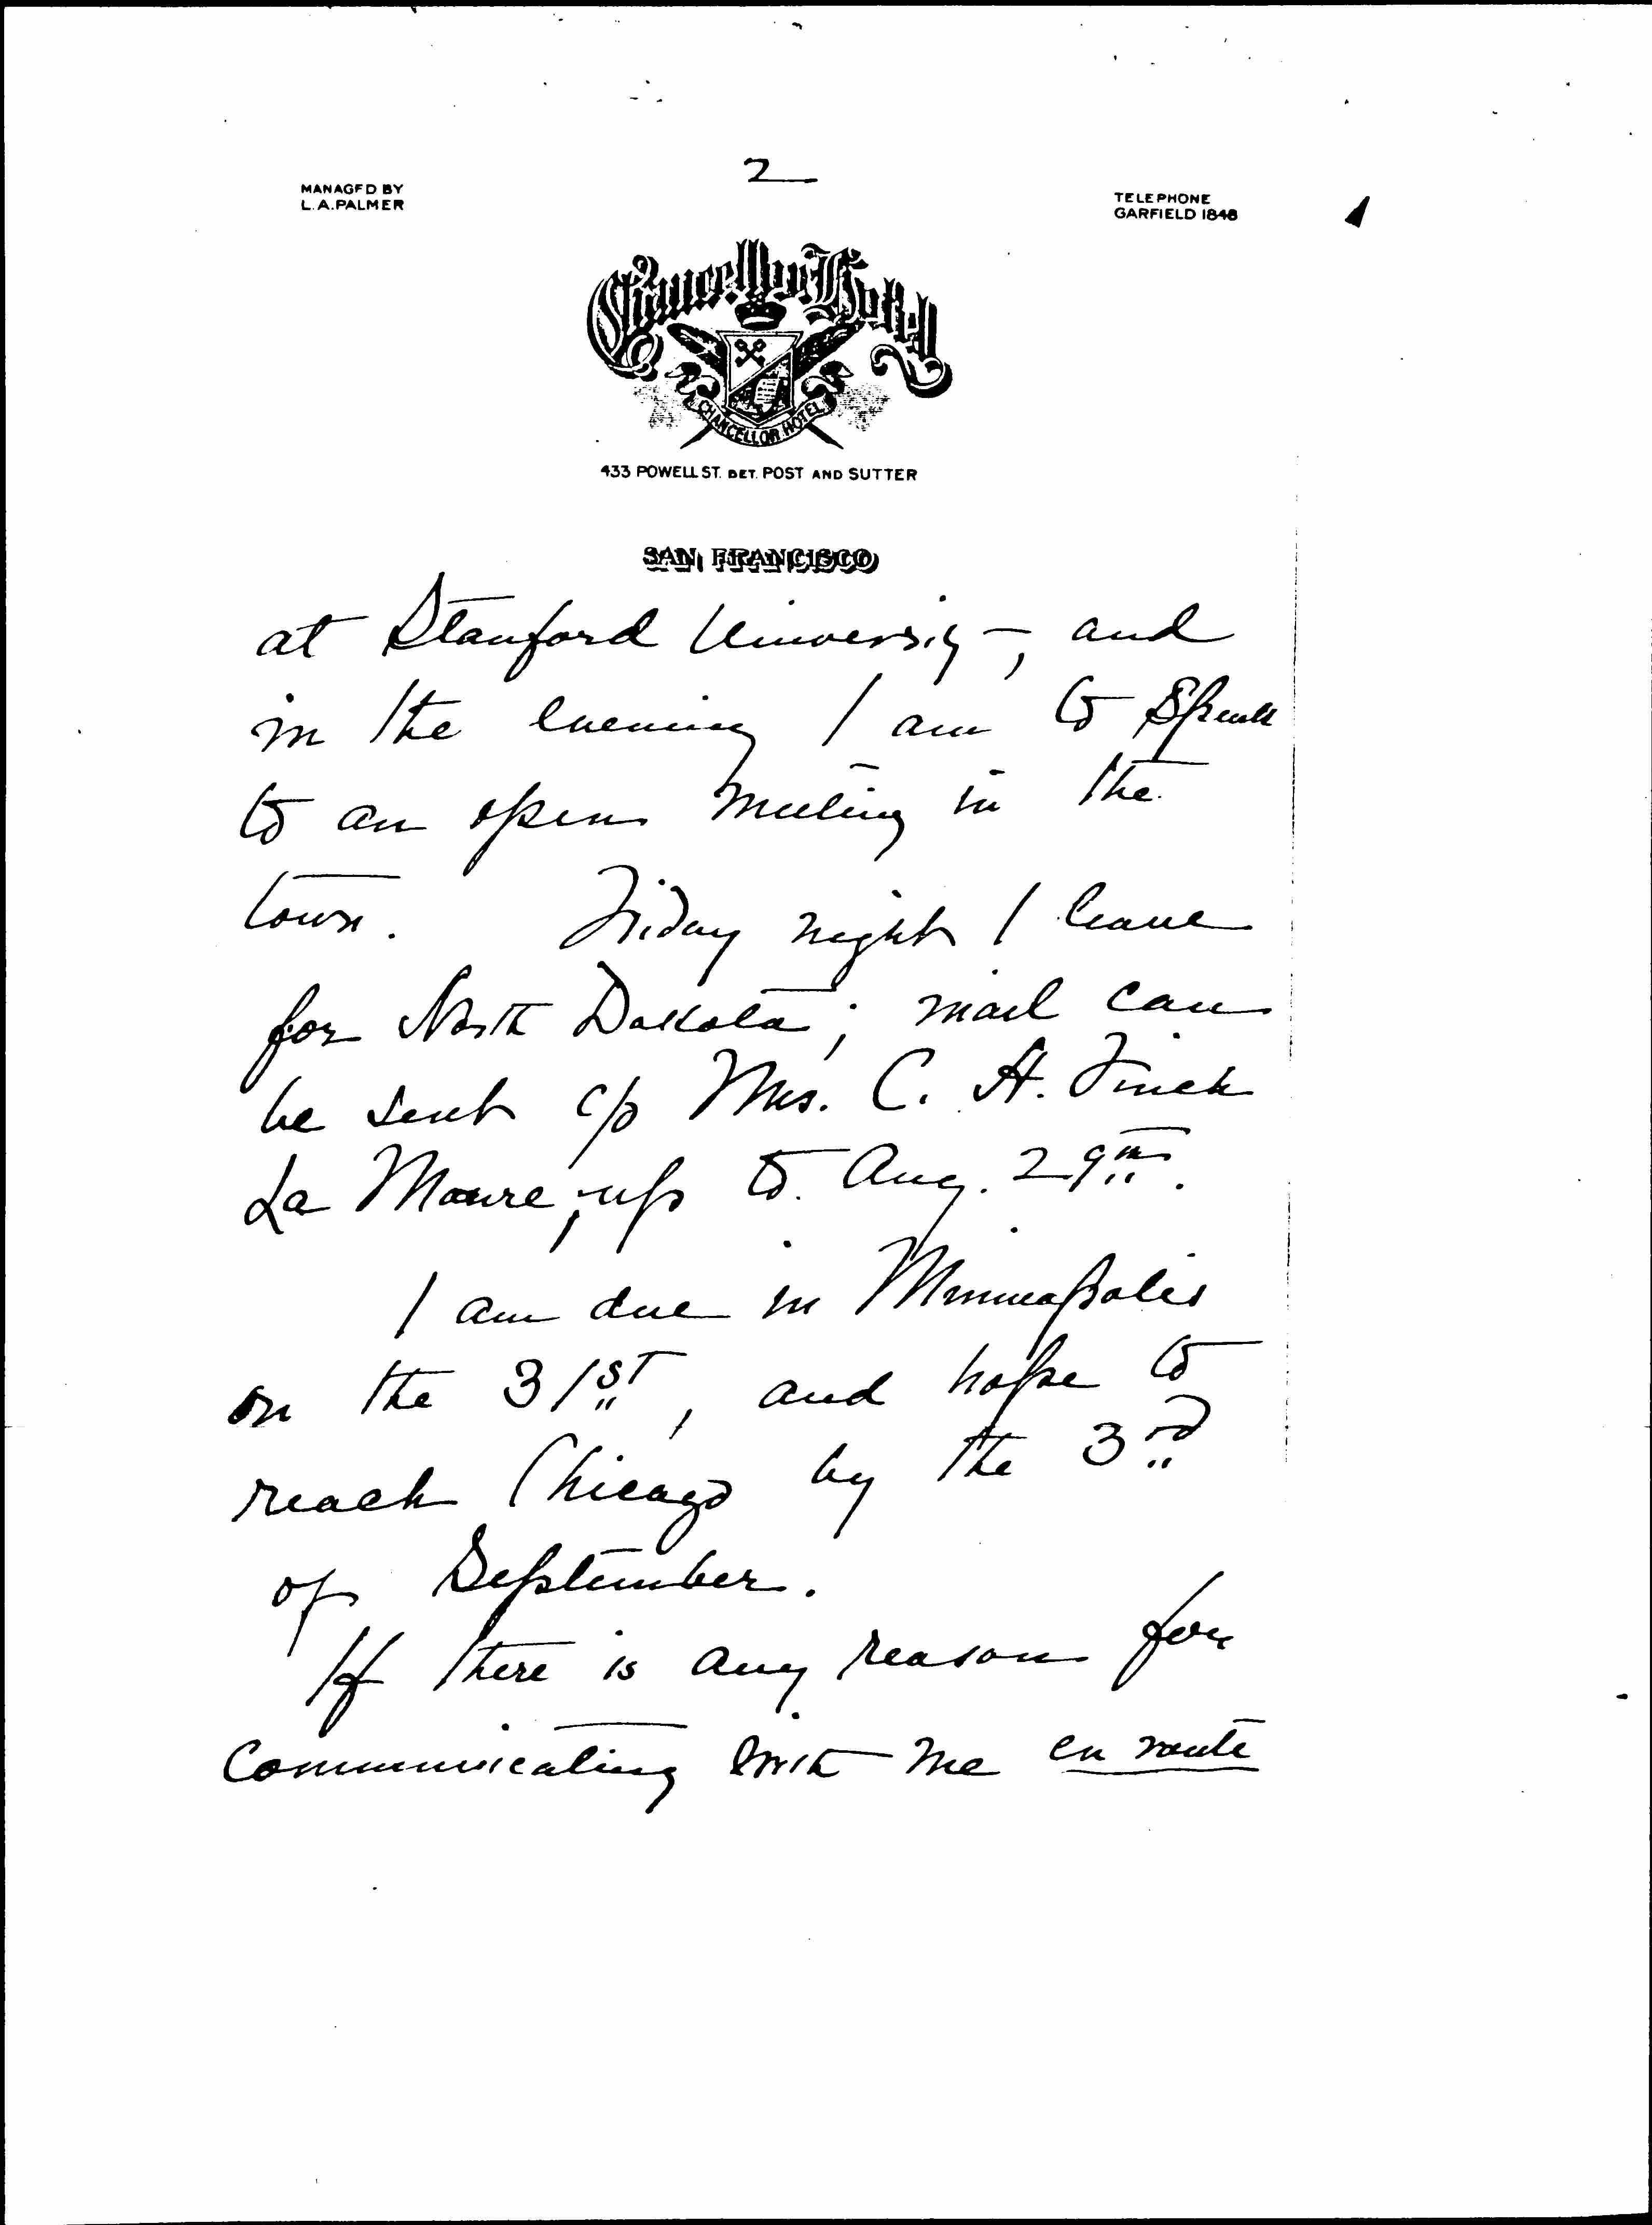 2
MANAGED BY
L.A. PALMER
TELEPHONE
GARFIELD 1848
Chancellor Hotel
CHANCELLOR HOTEL
433 POWELL ST. BET. POST AND SUTTER
SAN FRANCISCO
at Stanford University, and
in the evening I am to speak
to an open meeting in the
town. Friday night I leave
for North Dakota; mail can
be sent c/o Mrs. C. H. Finch
La Moure, up to Aug. 29th.
I am due in Minneapolis
on the 31st, and hope to
reach Chicago by the 3rd
of September.
If there is any reason for
communicating with me en route